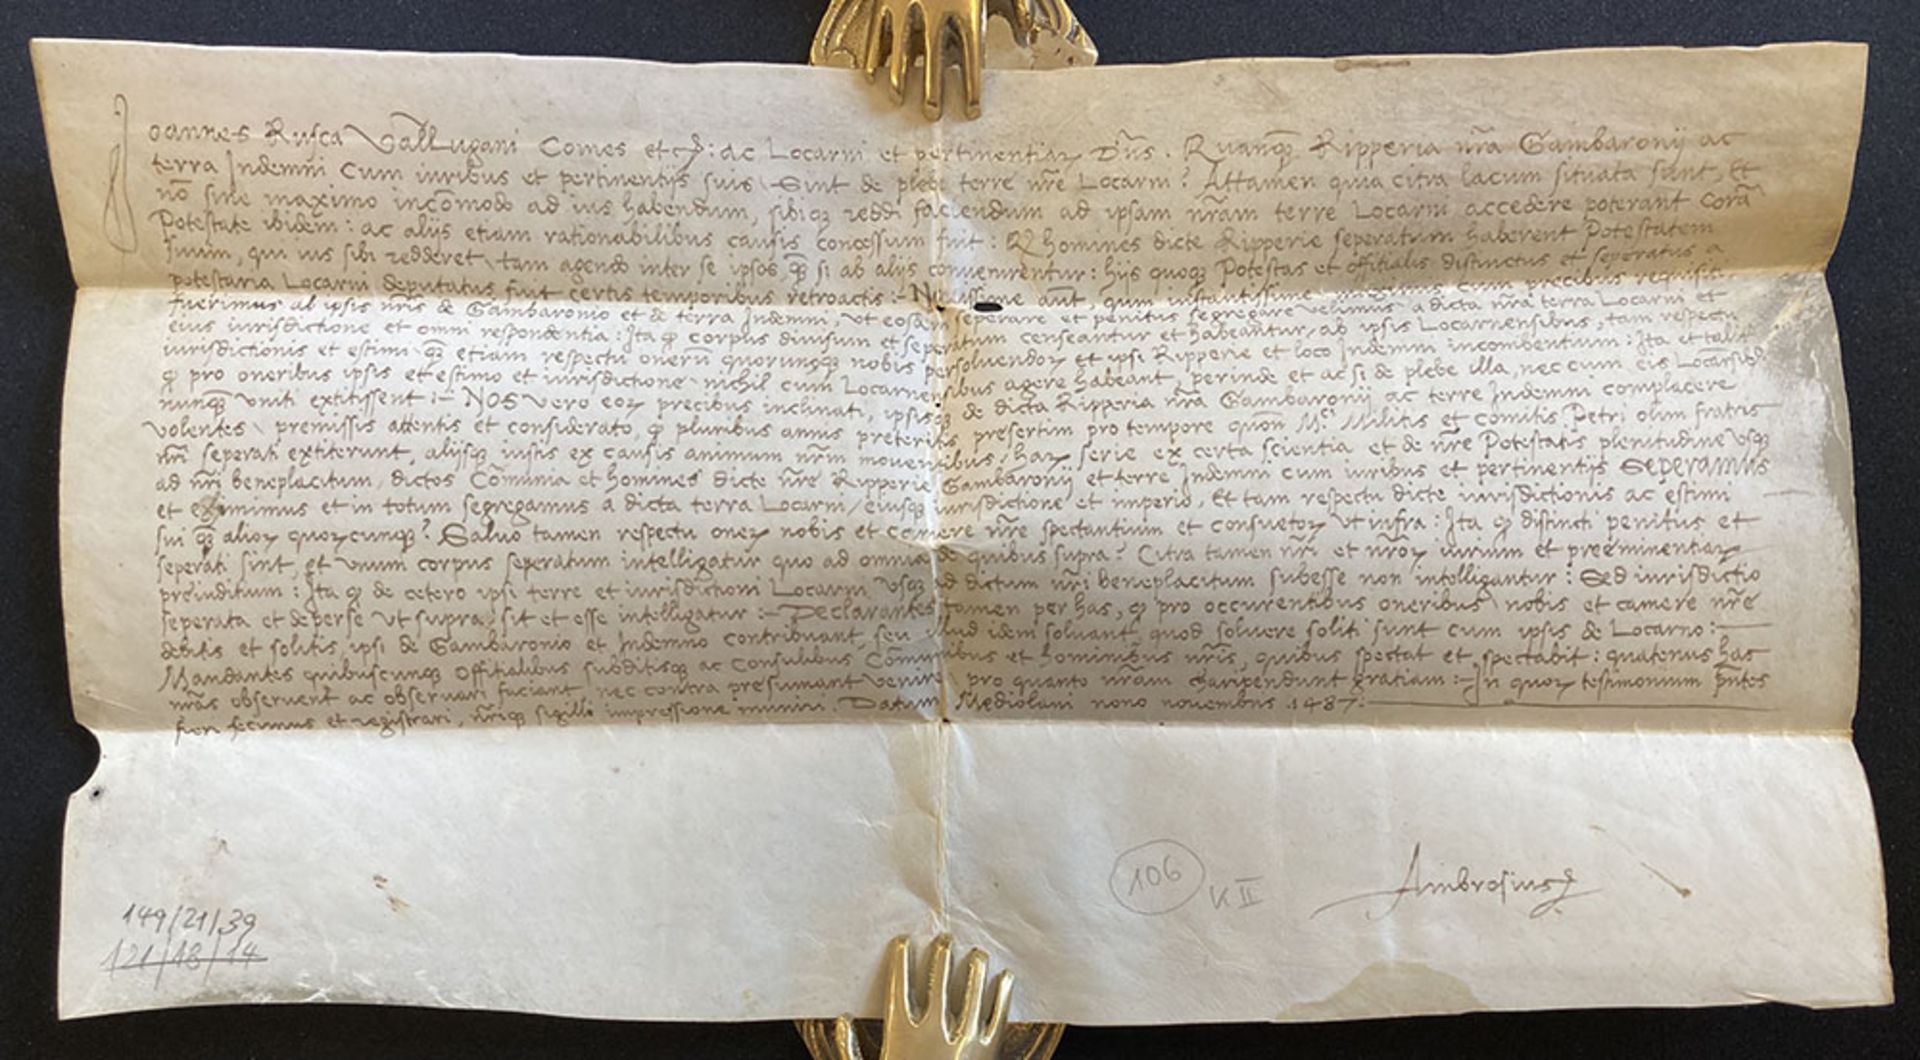 Joannes Rusca Vallugani Comes et cet: ac Locarni et pertinentiaꝝ Dn̄s. Quanqꝫ Ripperia nr̄a Gambaronij ac
terra Indemni cum iuribus et pertinentijs suis Sint de plebe terre nr̄e Locarni? Attamen quia citra lacum situata sunt, Et
nō sine maximo incōmodo ad ius habendum, sibiqꝫ reddi faciendum ad ipsam nr̄am terre Locarni accedere poterant corā
Potestate ibidem: ac alijs etiam rationabilibus causis concessum fuit: Qꝫ homines dicte Ripperie seperatum haberent Potestatem
suum, qui ius sibi redderet tam agendo inter se ipsos, qꝫ si ab alijs convenirentur: hijs quoqꝫ Potestas et offitialis distinctus et seperatus a
potestaria Locarni deputatus fuit certis temporibus retroactis:- Novissime aūt, qum instantissime cum precibus requisiti
fuerimus ab ipsis nr̄is de Gambaronio et de terra Indemni, ut eosdem seperare et penitus segregare velimus a dicta nr̄a terra Locarni et
eius iurisdictione et omni respondentia: Ita ꝙ corpus divisum et seperatum censeantur et habeantur, ab ipsis Locarnensibus, tam respectu
iurisdictionis et estimi qꝫ etiam respectu onerū quorunqꝫ nobis persolvendoꝝ et ipsi Ripperie et loco Indemni incombentium: Ita et taliter
ꝙ pro oneribus ipsis et estimo et iurisdictione nichil cum Locarnensibus agere habeant, perinde et ac si de plebe illa, nec cum eis Locarnsibꝫ
nunqꝫ uniti extitissent:- NOS vero eoꝝ precibus inclinati, ipsisqꝫ de dicta Ripperia nr̄a Gambaronij ac terre Indemni complacere
volentes premissis attentis et considerato, ꝙ pluribus annis preteritis, presertim pro tempore quōn M.ci Militis et comitis Petri olim fratris
nr̄i seperati extiterunt, alijsqꝫ iustis ex causis animum nr̄m moventibus, haꝝ serie ex certa scientia et de nr̄e Potestatis plenitudine usqꝫ
ad nr̄i beneplacitum, dictos Cōmunia et homines dicte nr̄e Ripperie Gambaronij et terre Indemni cum iuribus et pertinentijs Seperamus
et eximimus et in totum segregamus a dicta terra Locarni, eiusqꝫ iurisdictione et imperio, Et tam respectu dicte iurisdictionis ac estimi
sui qꝫ alioꝝ quoꝝcunqꝫ? Salvo tamen respectu oneꝝ nobis et camere nr̄e spectantium et consuetoꝝ ut infra: Ita ꝙ distincti penitus et
seperati sint, et unum corpus seperatum intelligatur quo ad omnia de quibus supra? Citra tamen nr̄i et nr̄oꝝ iurium et preeminentiaꝝ
preiuditium: Ita ꝙ de cetero ipsi terre et iurisdictioni Locarni usqꝫ ad dictum nr̄i beneplacitum subesse non intelligantur: Sed iurisdictio
seperata et deperse ut supra, sit et esse intelligatur:- Declarantes tamen per has, ꝙ pro occurentibus oneribus nobis et camere nr̄e
debitis et solitis, ipsi de Gambaronio et Indemno contribuant, seu illud idem solvant, quod solvere soliti sunt cum ipsis de Locarno:-
Mandantes quibuscunqꝫ offitialibus subditisqꝫ ac Consulibus Cōmunibus et hominibus nr̄is, quibus spectat et spectabit: quatenus has
nr̄as observent ac observari faciant, nec contra presumant venire, pro quanto nr̄am charipendunt gratiam:- In quoꝝ testimonium pn̄tes
fieri fecimus et registrari, nr̄iqꝫ sigilli impressione muniri. Datum Mediolani nono novembris 1487:-
Ambrosius
106 K II
149/21/39
121/18/14